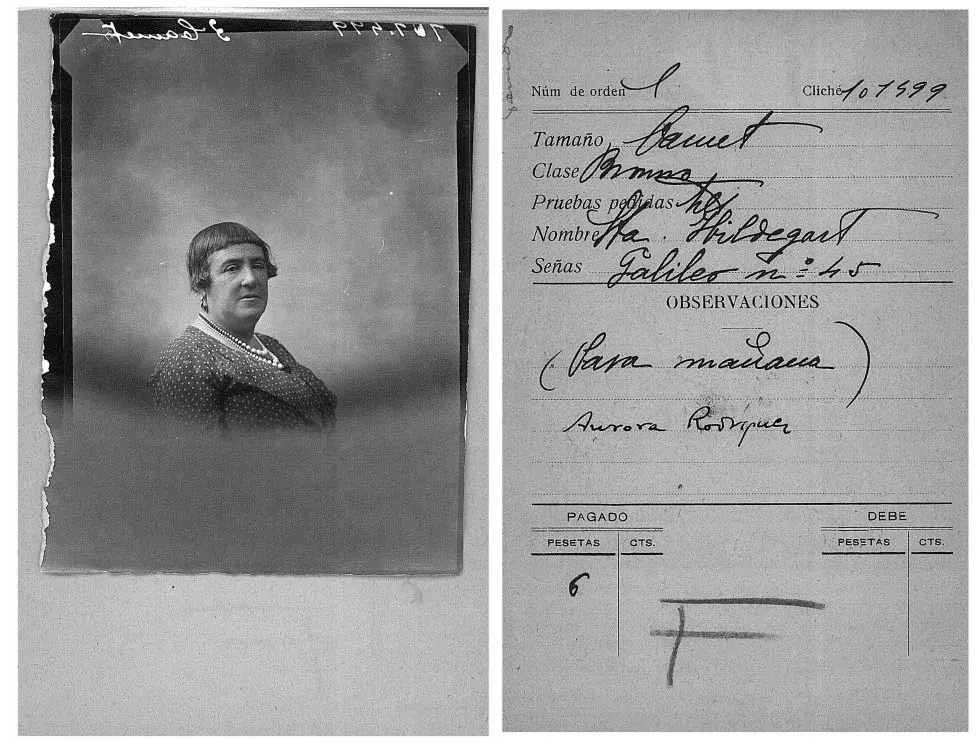 Núm de orden 1 Cliché 101599
Tamaño Carnet
Clase Bromuro
Pruebas pedidas tres
Nombre Sta. Hildegart
Señas Galileo nº 45
OBSERVACIONES
(Para mañana)
Aurora Rodríguez
PAGADO DEBE
PESETAS CTS. PESETAS CTS.
6
F